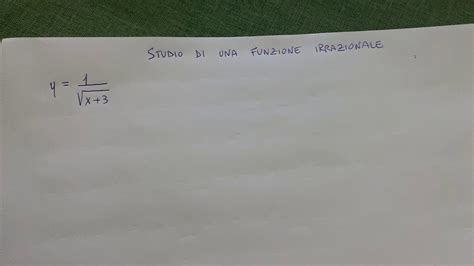 STUDIO DI UNA FUNZIONE IRRAZIONALE
y = 1/√(x+3)